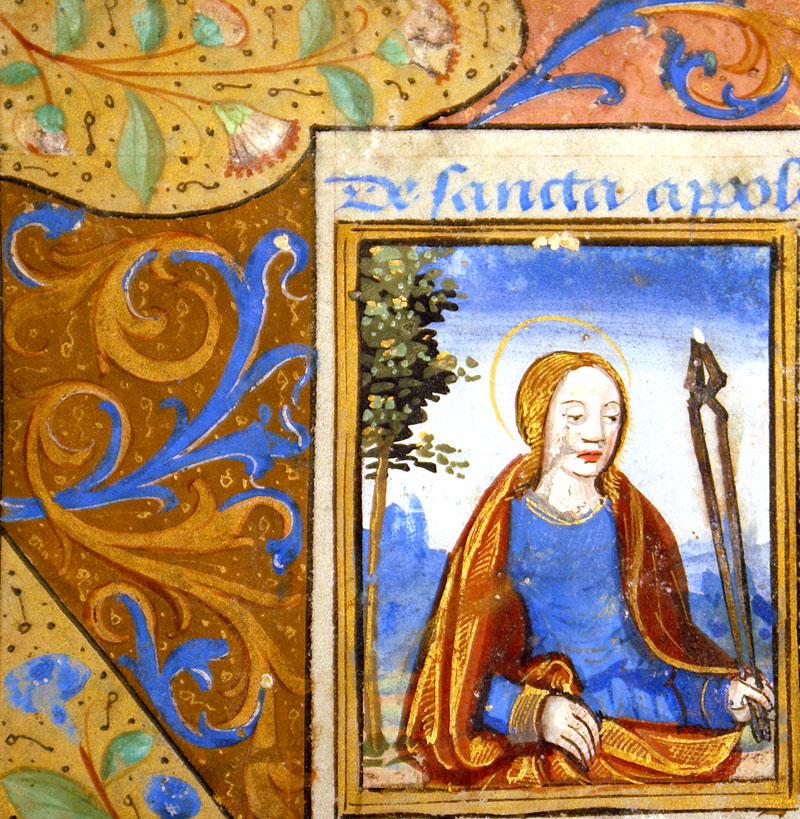 De sancta appol